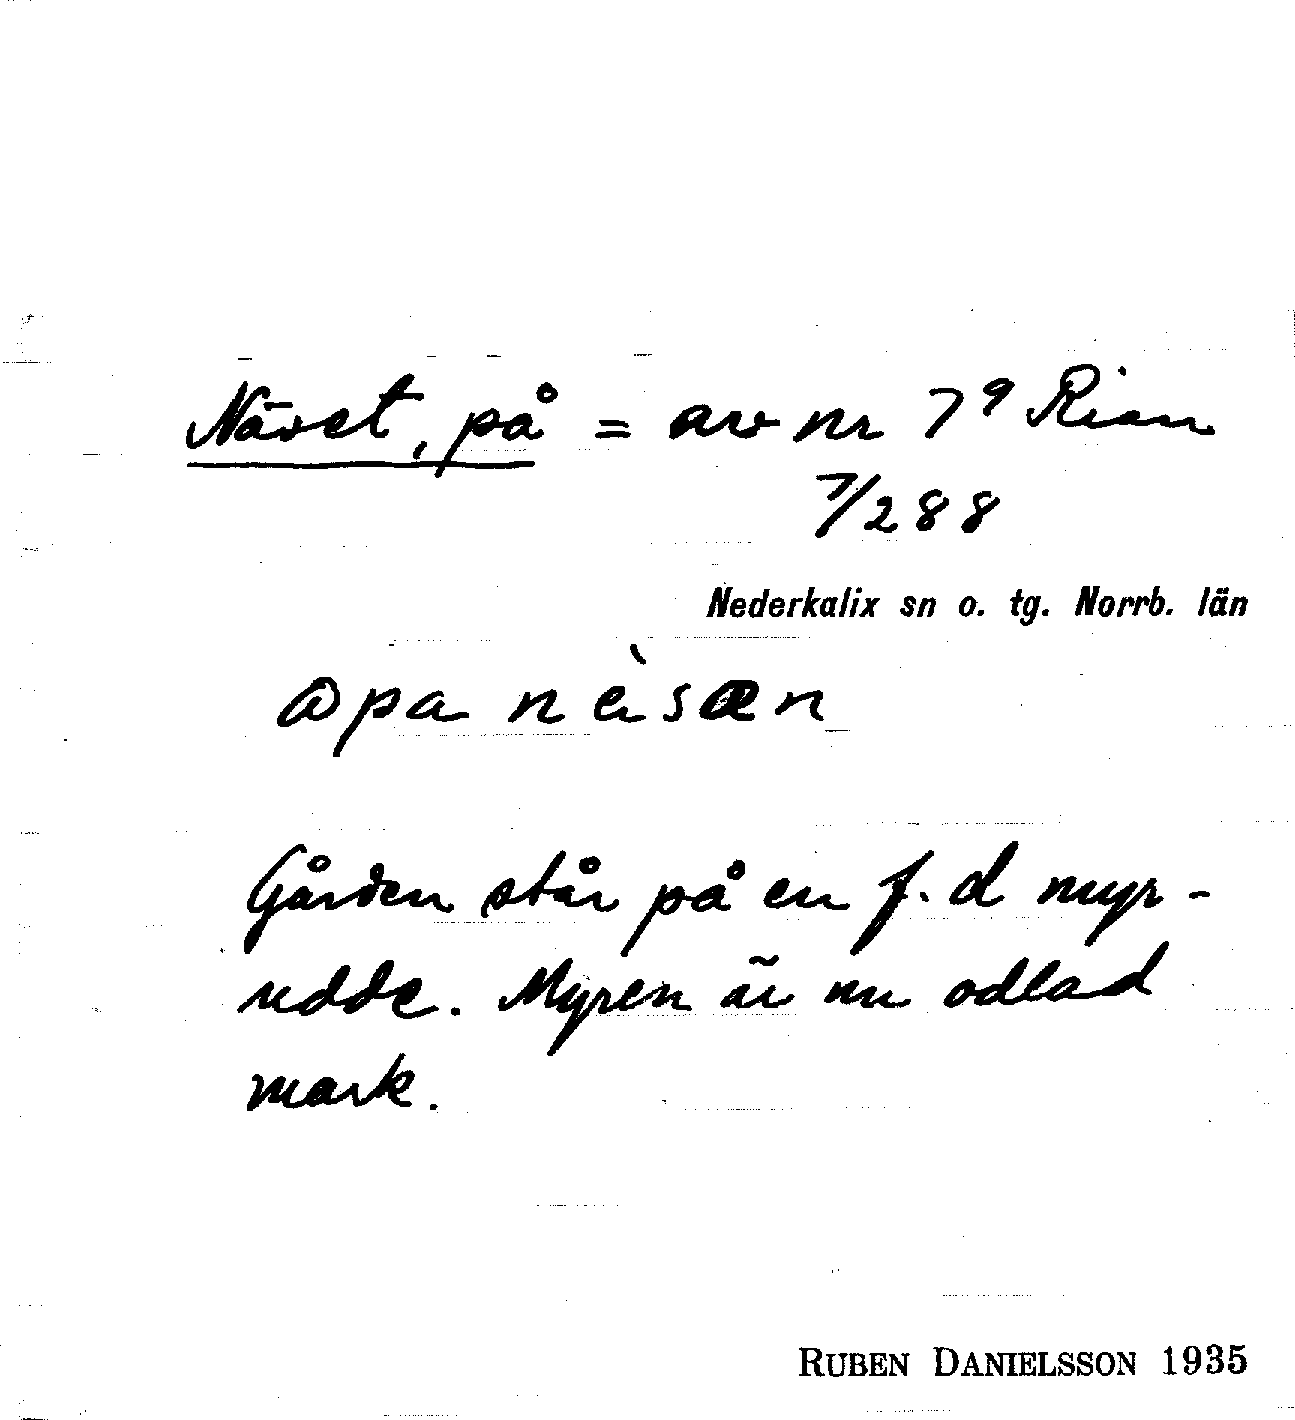 Näset, på = av nr 7⁹ Rian
7/288
Nederkalix sn o. tg. Norrb. län
Gården står på en f. d myr-
udde. Myren är nu odlad
mark.
RUBEN DANIELSSON 1935